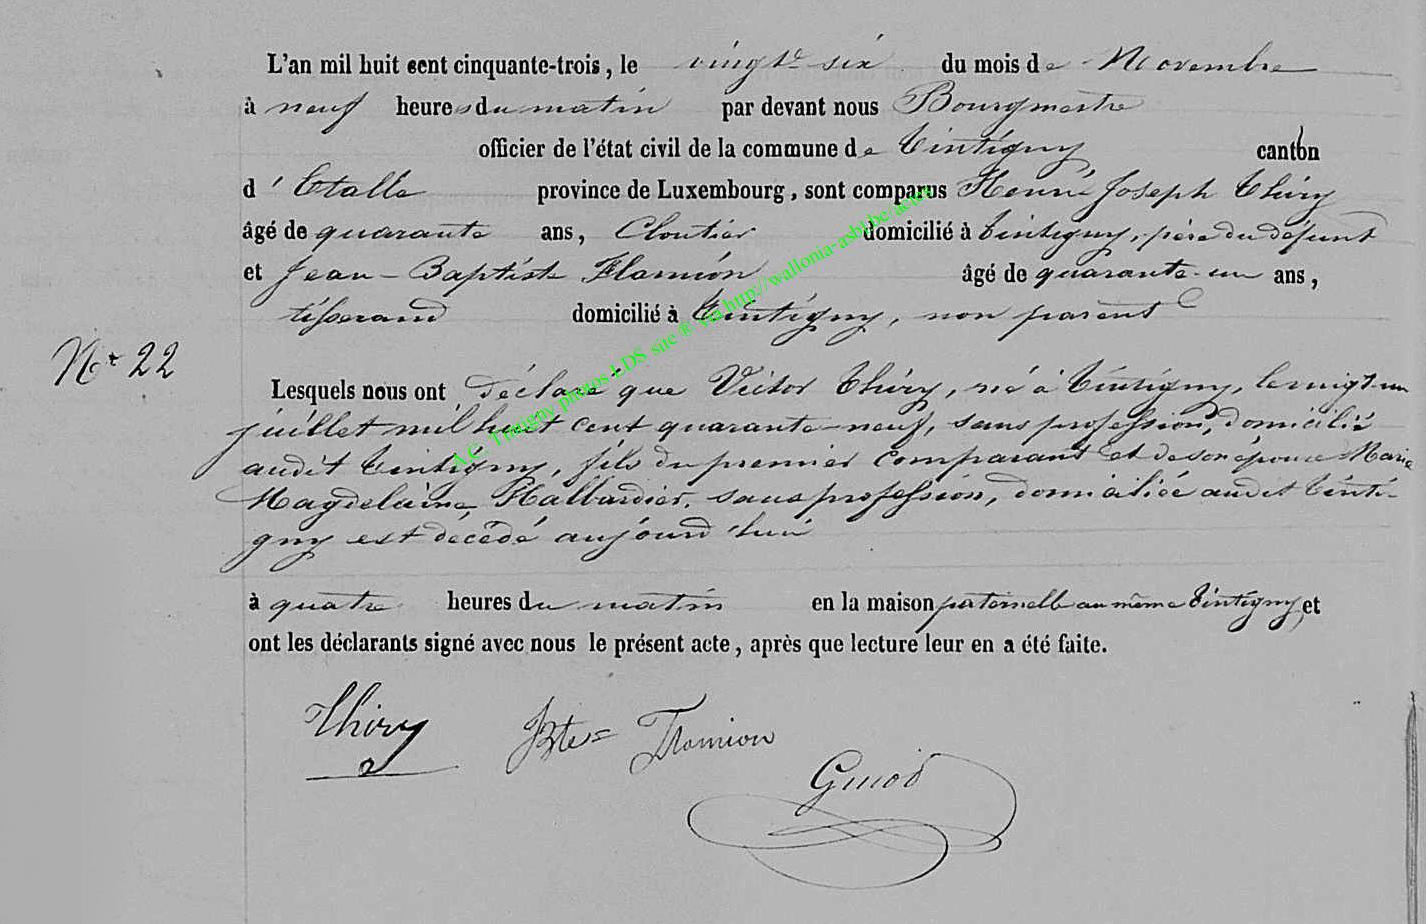 L'an mil huit cent cinquante-trois, le vingt six du mois de Novembre
à neuf heures du matin par devant nous Bourgmestre
officier de l'état civil de la commune de Tintigny canton
d'Etalle province de Luxembourg, sont comparus Henri Joseph Thiry
âgé de quarante ans, Cloutier domicilié à Tintigny, père du défunt
et Jean-Baptiste Flamion âgé de quarante-un ans,
tisserand domicilié à Tintigny, non parent
N° 22
Lesquels nous ont déclaré que Victor Thiry, né à Tintigny, le vingt-un
juillet mil huit cent quarante-neuf, sans profession, domicilié
audit Tintigny, fils du premier comparant et de son épouse Marie
Magdelaine Hallbardier, sans profession, domiciliée audit Tinti-
gny est décédé aujourd'hui
à quatre heures du matin en la maison paternelle au même Tintigny et
ont les déclarants signé avec nous le présent acte, après que lecture leur en a été faite.
Thiry Jbte= Flamion
A.C. Tintigny photos LDS site ® via http://wallonia-asbl.be/actes